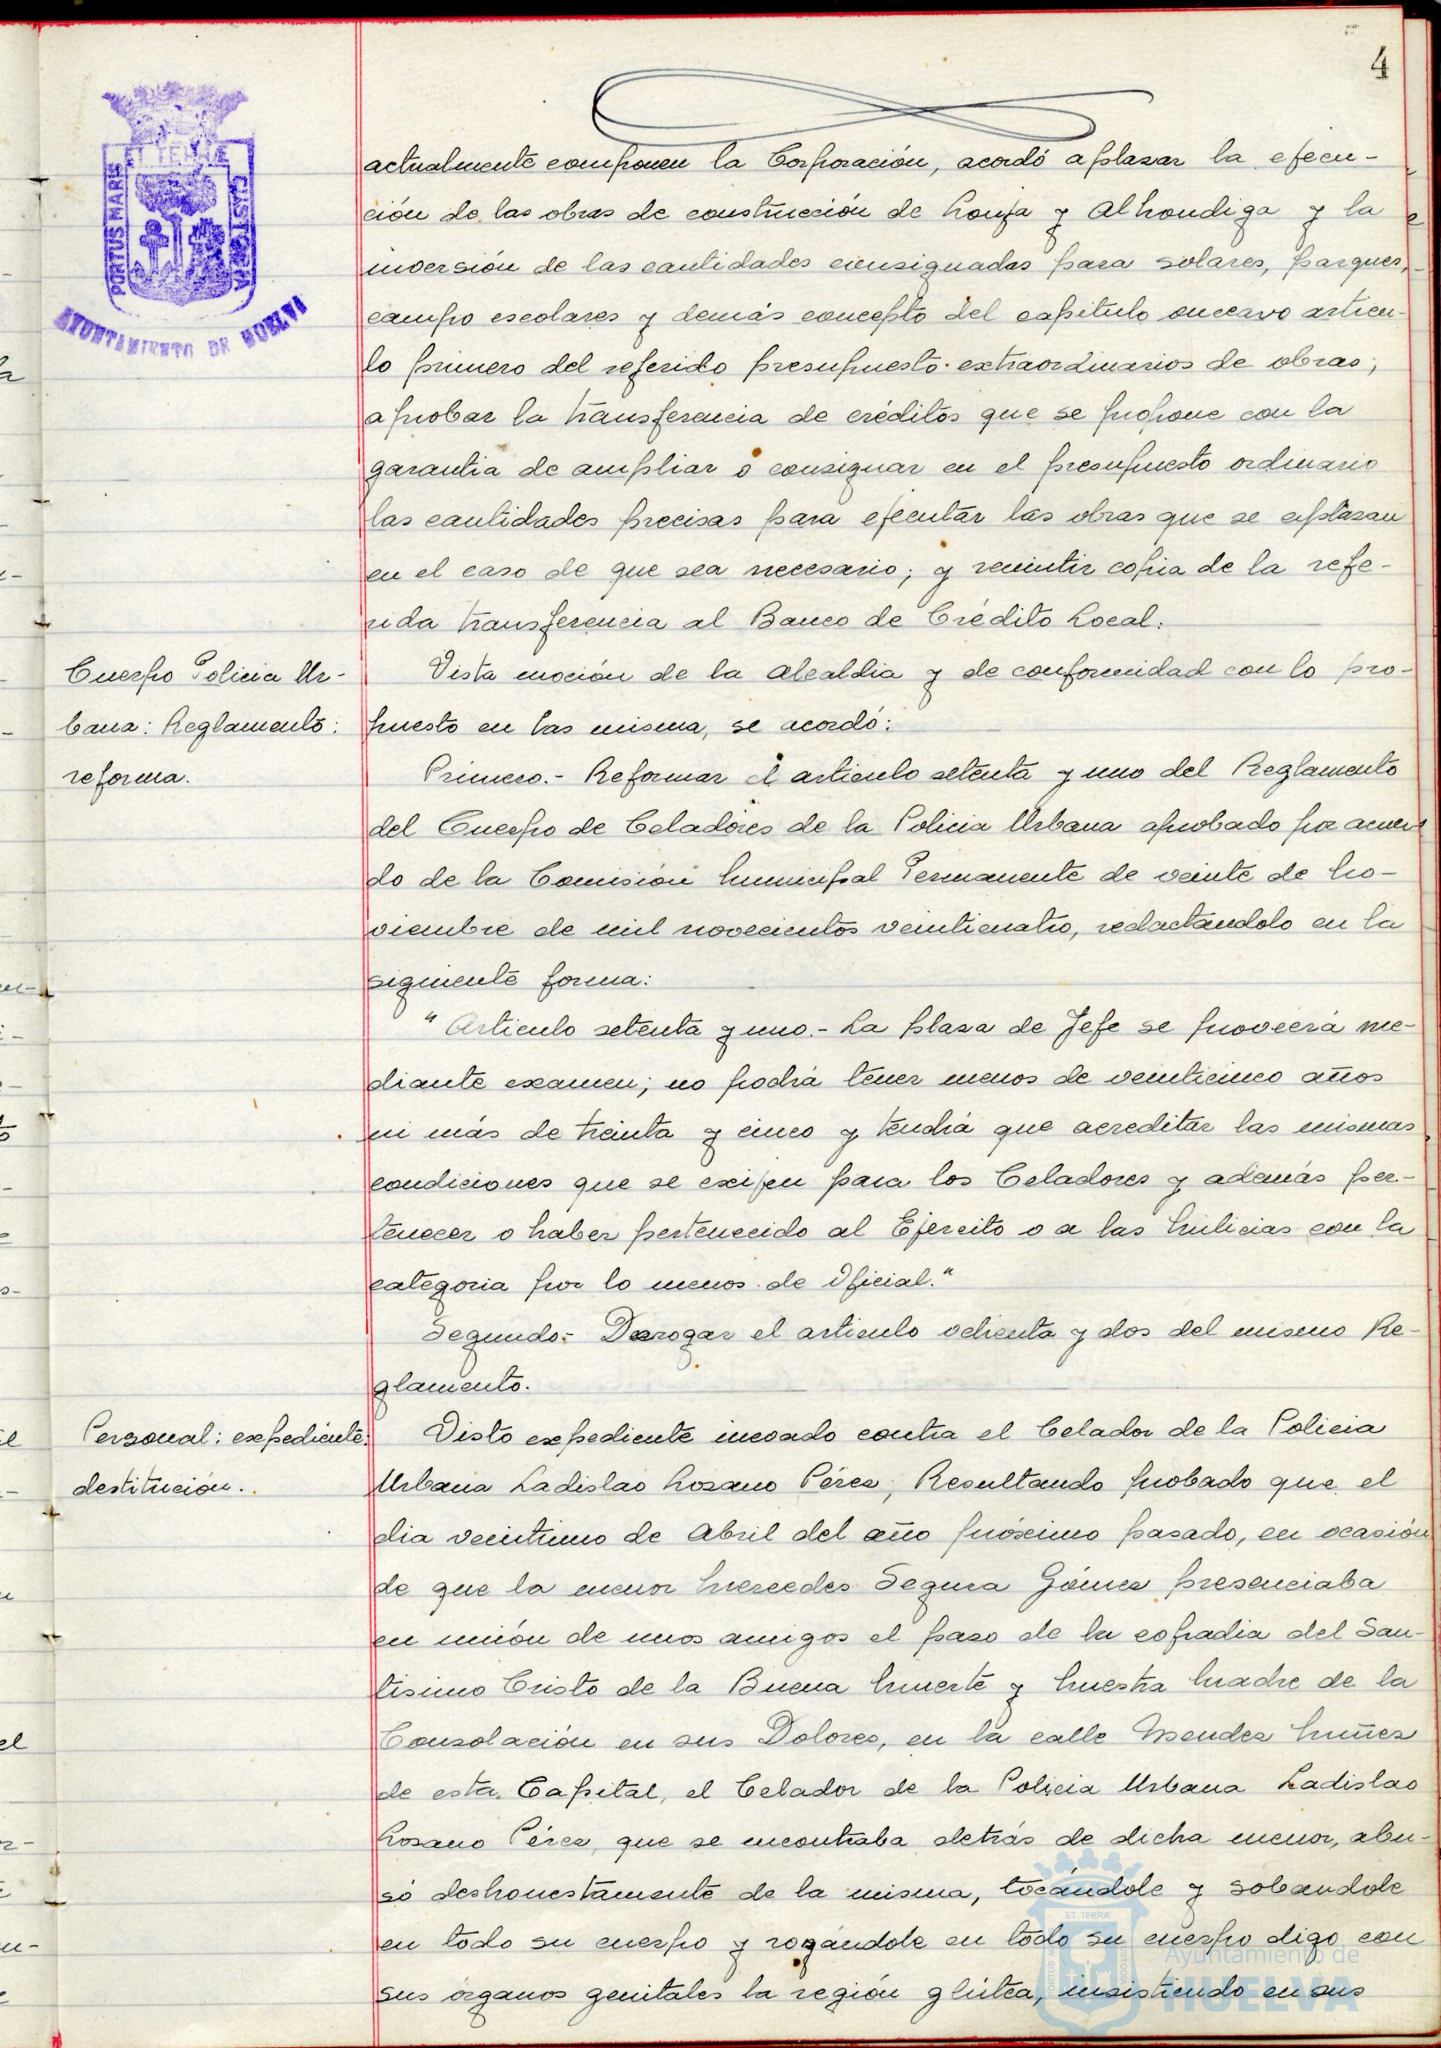 4
PORTUS MARIS ET TERRÆ CVSTODIA
AYUNTAMIENTO DE HUELVA
actualmente componen la Corporación, acordó aplazar la ejecu-
ción de las obras de construcción de Lonja y Alhondiga y la
inversión de las cantidades consignadas para solares, parques,
campo escolares y demás concepto del capitulo onceavo articu-
lo primero del referido presupuesto extraordinarios de obras;
aprobar la transferencia de créditos que se propone con la
garantia de ampliar o consignar en el presupuesto ordinario
las cantidades precisas para ejecutar las obras que se aplazan
en el caso de que sea necesario; y remitir copia de la refe-
rida transferencia al Banco de Crédito Local.
Cuerpo Policia Ur-
bana: Reglamento:
reforma.
Vista moción de la Alcaldia y de conformidad con lo pro-
puesto en las misma, se acordó:
Primero.- Reformar el articulo setenta y uno del Reglamento
del Cuerpo de Celadores de la Policia Urbana aprobado por acuer
do de la Comisión Municipal Permanente de veinte de No-
viembre de mil novecientos veinticuatro, redactándolo en la
siguiente forma:
"Articulo setenta y uno.- La plaza de Jefe se proveerá me-
diante examen; no podrá tener menos de veinticinco años
ni más de treinta y cinco y tendrá que acreditar las mismas
condiciones que se exijen para los Celadores y además per-
tenecer o haber pertenecido al Ejercito o a las Milicias con la
categoria por lo menos de Oficial."
Segundo.- Derogar el articulo ochenta y dos del mismo Re-
glamento.
Personal: expediente:
destitución.
Visto expediente incoado contra el Celador de la Policia
Urbana Ladislao Lozano Pérez; Resultando probado que el
dia veintiuno de Abril del año próximo pasado, en ocasión
de que la menor Mercedes Segura Gómez presenciaba
en unión de unos amigos el paso de la cofradia del San-
tisimo Cristo de la Buena Muerte y Nuestra Madre de la
Consolación en sus Dolores, en la calle Mendez Nuñez
de esta Capital, el Celador de la Policia Urbana Ladislao
Lozano Pérez, que se encontraba detrás de dicha menor, abu-
só deshonestamente de la misma, tocándole y sobandole
en todo su cuerpo y rozándole en todo su cuerpo digo con
sus órganos genitales la región glútea, insistiendo en sus
Ayuntamiento de
HUELVA